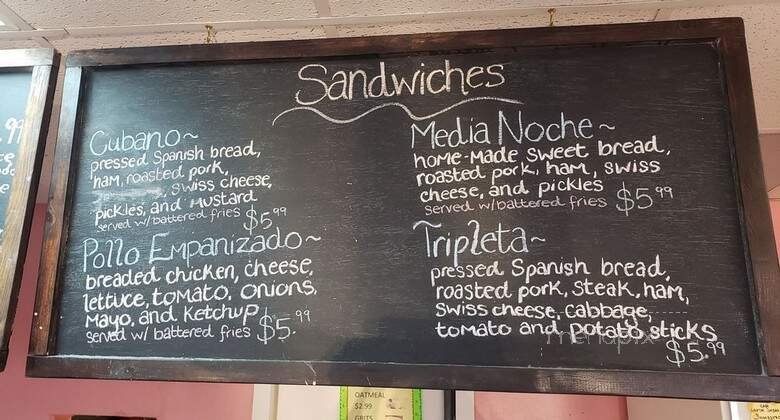 Sandwiches
Cubano~
pressed Spanish bread,
ham, roasted pork,
swiss cheese,
pickles, and mustard
served w/battered fries $5.99
Pollo Empanizado~
breaded chicken, cheese,
lettuce, tomato, onions,
Mayo, and Ketchup
served w/ battered fries $5.99
Media Noche~
home-made sweet bread,
roasted pork, ham, swiss
cheese, and pickles
served w/battered fries $5.99
Tripleta~
pressed Spanish bread,
roasted pork, steak, ham,
swiss cheese, cabbage,
tomato and potato sticks
$5.99
menupix
OATMEAL
$2.99
GRITS
.99